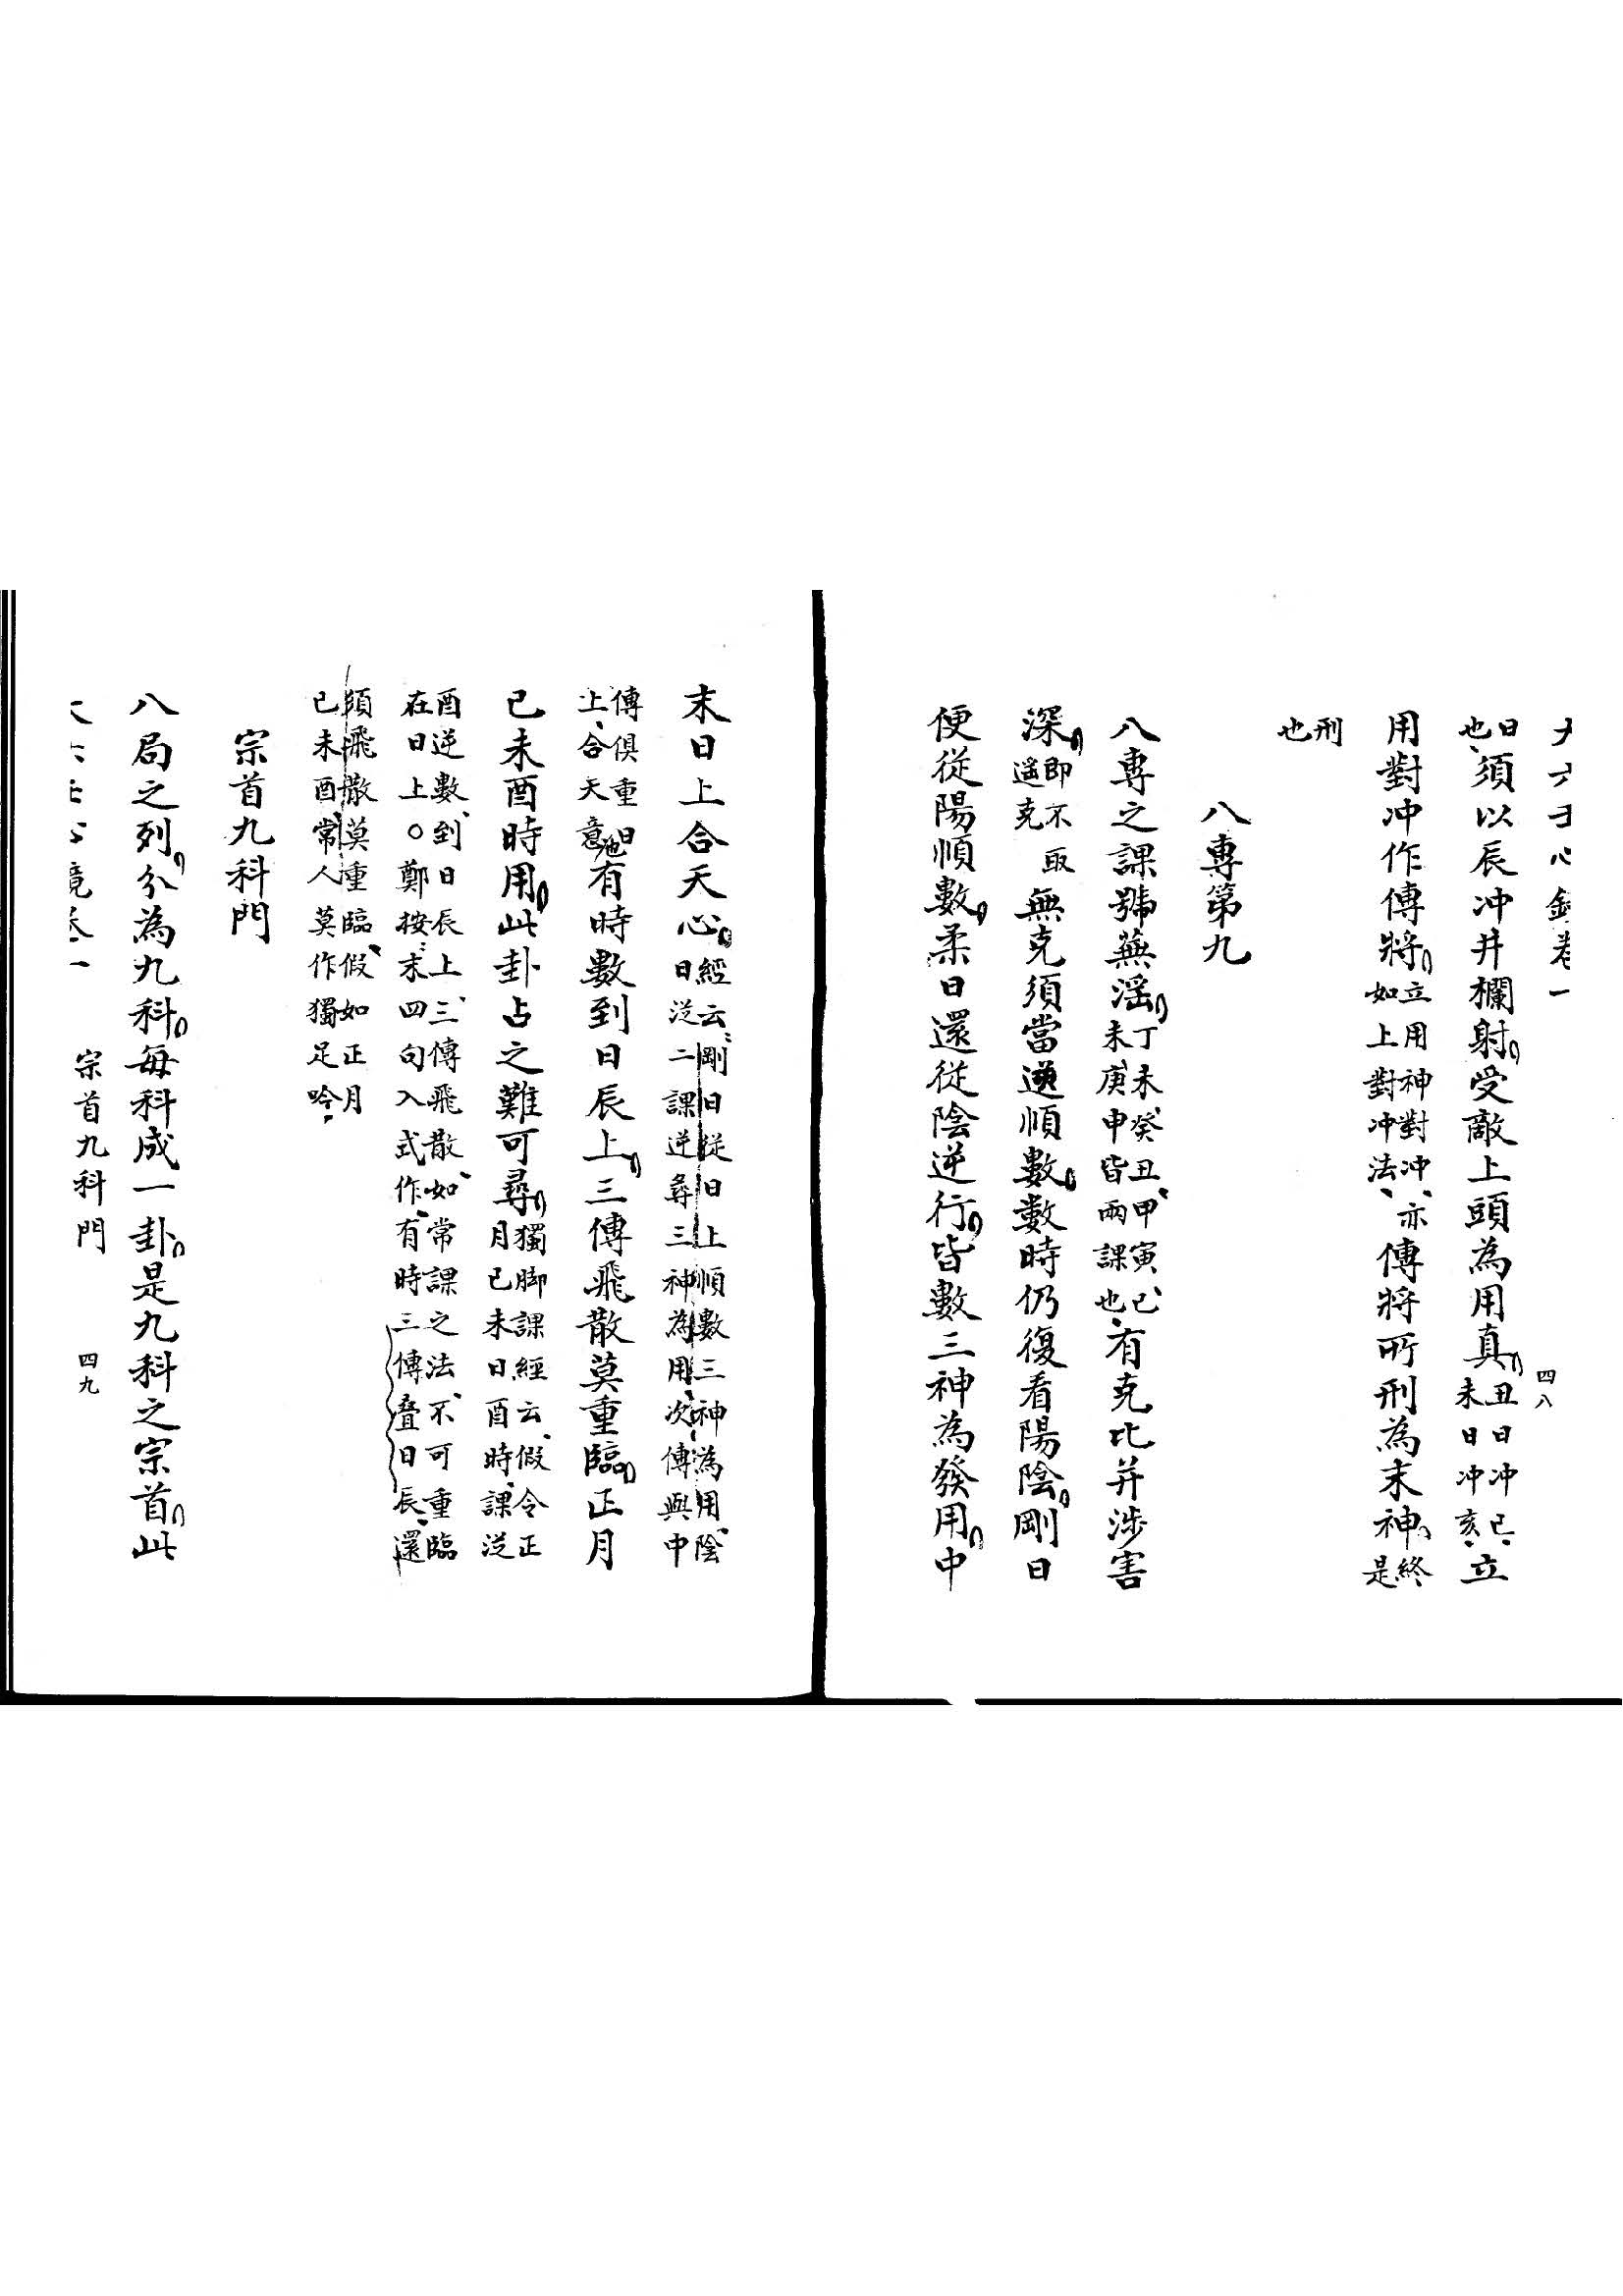 大六壬心鏡卷一
四八
日也、須以辰冲井欄射。受敵上頭為用真。丑日冲巳、未日冲亥、立
用對冲作傳將。立用神對冲、亦如上對冲法、傳將所刑為末神。終是
刑也
八專第九
八專之課號蕪淫。丁未、癸丑、甲寅、己未、庚申皆兩課也、有克比并涉害
深。即不取遥克無克須當逆順數。數時仍復看陽陰。剛日
便從陽順數。柔日還從陰逆行。皆數三神為發用。中
末日上合天心。經云、剛日從日上順數三神為用、陰日從二課逆尋三神為用、次傳與中
傳俱重日上、合天意也有時數到日辰上。三傳飛散莫重臨。正月
己未酉時用。此卦占之難可尋。獨脚課經云、假令正月己未日酉時、課從
酉逆數、到日辰上、三傳飛散、如常課之法、不可重臨在日上○鄭按：末四句入式作、有時三傳叠日辰、還
須飛散莫重臨、假如正月己未酉、常人莫作獨足吟．
宗首九科門
八局之列。分為九科。每科成一卦。是九科之宗首。此
大六壬心鏡卷一
宗首九科門
四九